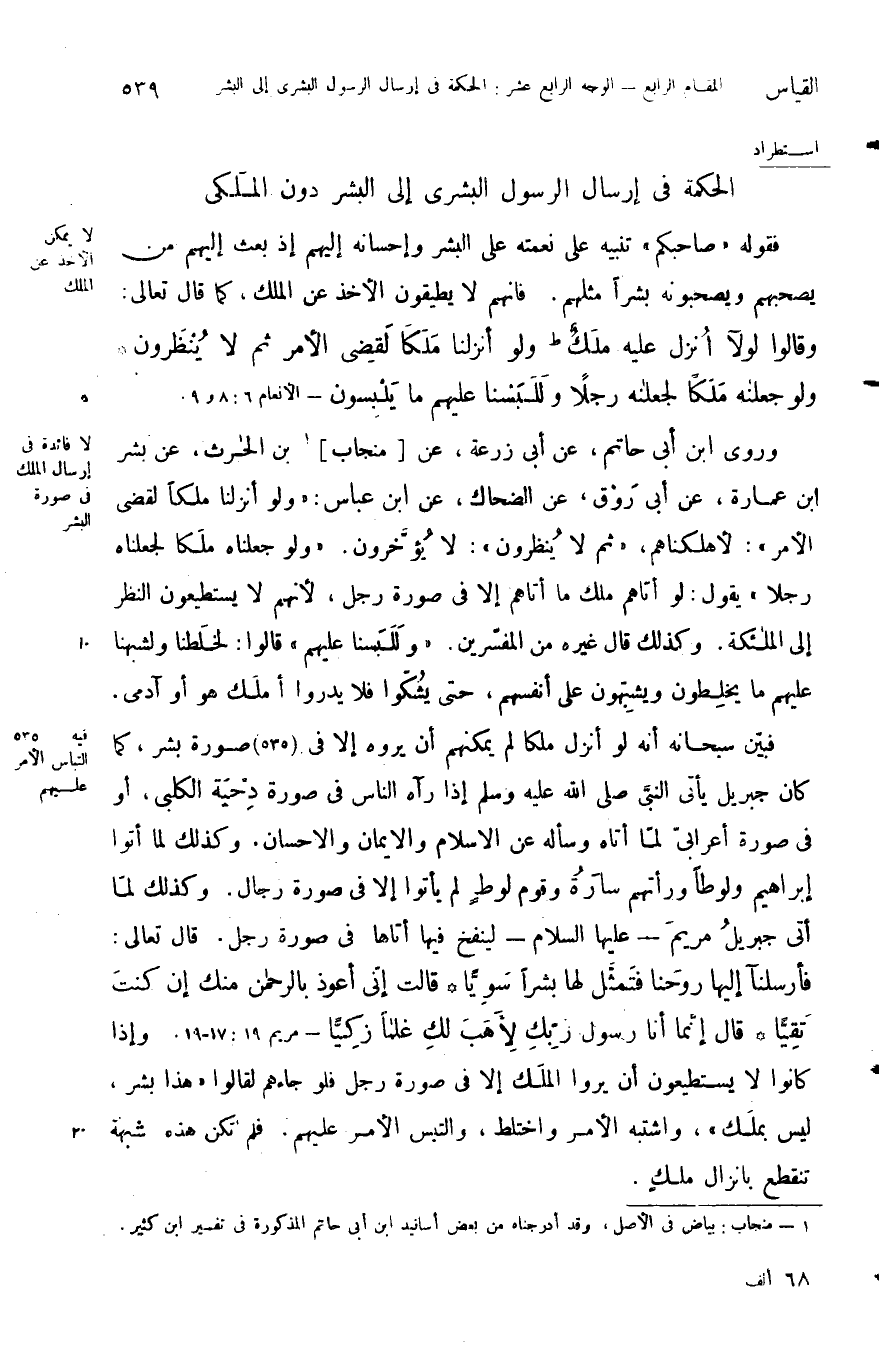 القياس المقام الرابع – الوجه الرابع عشر : الحكمة فى إرسال الرسول البشرى إلى البشر ٥٣٩
استطراد
الحكمة فى إرسال الرسول البشرى إلى البشر دون الملَكى
فقوله «صاحبكم» تنبيه على نعمته على البشر وإحسانه إليهم إذ بعث إليهم من
لا يمكن
الأخذ عن
الملك
يصحبهم ويصحبونه بشراً مثلهم. فانهم لا يطيقون الأخذ عن الملك، كما قال تعالى:
وقالوا لولآ أُنزل عليه ملَكٌ ط ولو أنزلنا مَلَكًا لَقضى الأمر ثم لا يُنْظَرون *
ولو جعلنٰه مَلَكًا لجعلنٰه رجلًا وَلَلَبَسْنا عليهم ما يَلْبِسون – الأنعام ٦ : ٨ و ٩. ٥
وروى ابن أبى حاتم، عن أبى زرعة، عن [منجاب] ١ بن الحٰرث، عن بشر
لا فائدة فى
إرسال الملك
فى صورة
البشر
ابن عمارة، عن أبى رَوْق، عن الضحاك، عن ابن عباس: «ولو أنزلنا ملكاً لقضى
الأمر»: لأهلكناهم، «ثم لا يُنظرون»: لا يُؤخَّرون. «ولو جعلناه ملَكا لجعلناه
رجلا» يقول: لو أتاهم ملك ما أتاهم إلا فى صورة رجل، لأنهم لا يستطيعون النظر
إلى الملٰئكة. وكذلك قال غيره من المفسّرين. «وَلَلَبَسنا عليهم» قالوا: لخَلَطنا ولشبهنا ١٠
عليهم ما يخلِطون ويشبّهون على أنفسهم، حتى يشُكّوا فلا يدروا أ ملَك هو أو آدمى.
فبيّن سبحانه أنه لو أنزل ملكا لم يمكنهم أن يروه إلا فى (٥٣٥) صورة بشر، كما
فيه ٥٣٥
التباس الأمر
عليهم
كان جبريل يأتى النبىَّ صلى الله عليه وسلم إذا رآه الناس فى صورة دِحْيَة الكلبى، أو
فى صورة أعرابىّ لمّا أتاه وسأله عن الاسلام والايمان والاحسان. وكذلك لما أتوا
إبراهيم ولوطاً ورأتهم سارَةُ وقوم لوطٍ لم يأتوا إلا فى صورة رجال. وكذلك لمّا
أتى جبريلُ مريمَ – عليها السلام – لينفخ فيها أتاها فى صورة رجل. قال تعالى:
فأرسلنآ إليها روحَنا فتَمثَّل لها بشراً سَوِيًّا * قالت إنّى أعوذ بالرحمٰن منك إن كنتَ
تَقِيًّا * قال إنّما أنا رسول رَبِّكِ لِأَهَبَ لكِ غلٰماً زكِيًّا – مريم ١٩ : ١٧-١٩. وإذا
كانوا لا يستطيعون أن يروا الملَك إلا فى صورة رجل فلو جاءهم لقالوا «هذا بشر،
ليس بملَك»، واشتبه الأمر واختلط، والتبس الأمر عليهم. فلم تكن هذه شبهة ٢٠
تنقطع بانزال ملكٍ.
١ – منجاب : بياض فى الأصل، وقد أدرجناه من بعض أسانيد ابن أبى حاتم المذكورة فى تفسير ابن كثير.
٦٨ ألف